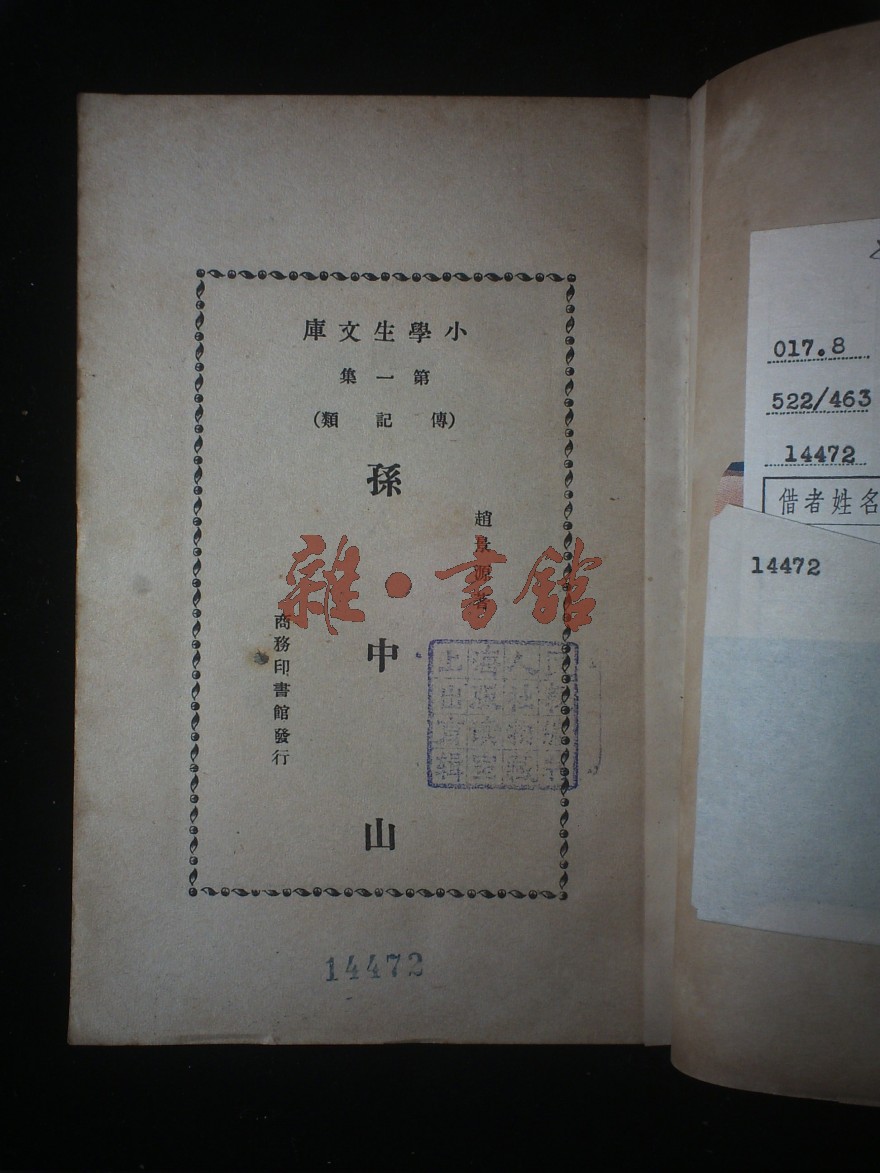 小學生文庫
第一集
(傳記類)
孫中山
趙景源著
商務印書館發行
雜·書館
14472
017.8
522/463
14472
借者姓名
14472